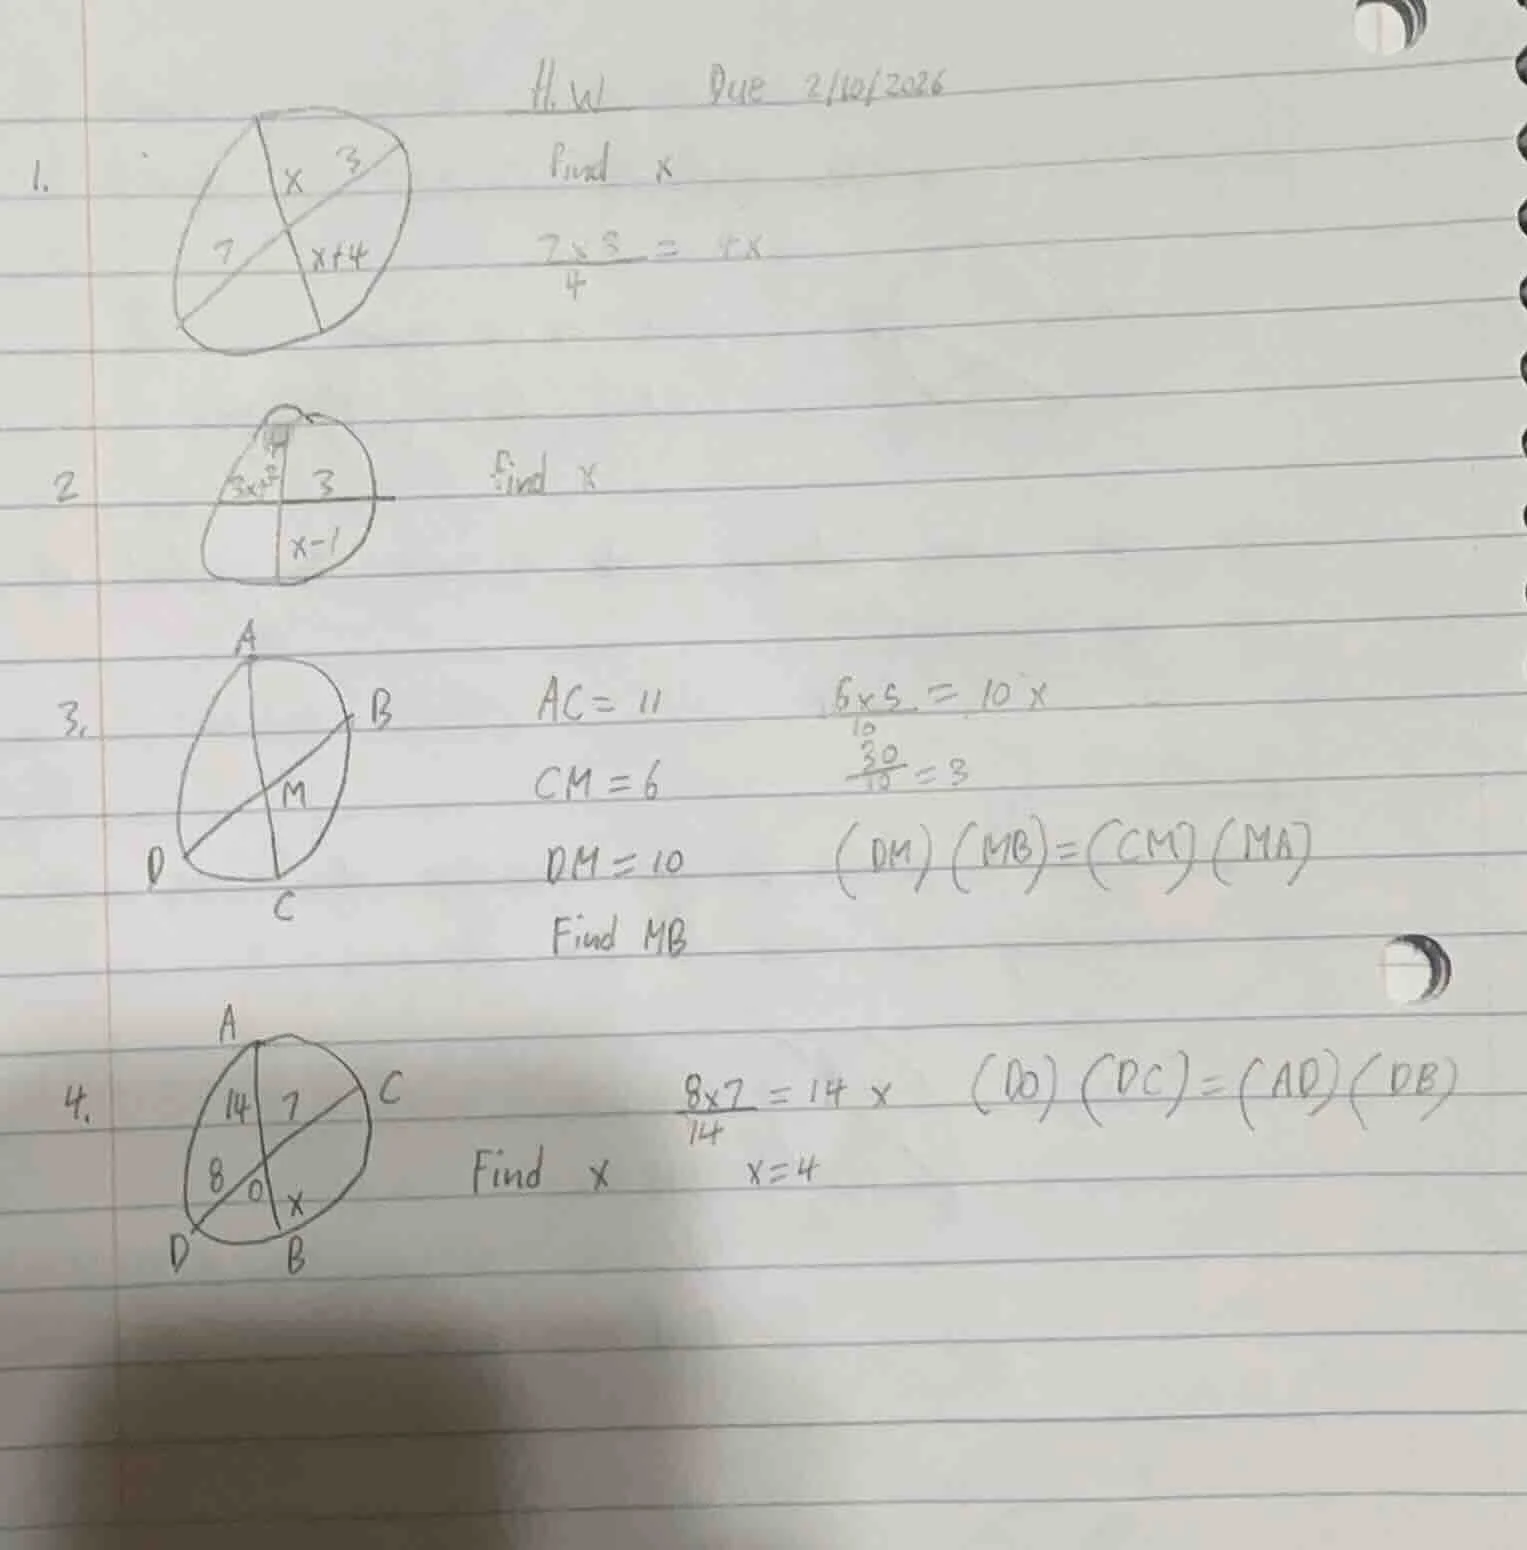 H.W Due 2/10/2026
1.
x 3
7 x+4
find x
7 x 3 = 4x
4
2
3
x-1
find x
3.
A
B
M
D
C
AC = 11
CM = 6
DM = 10
Find MB
6 x 5 = 10 x
10
30 = 3
10
(DM) (MB) = (CM) (MA)
4.
A
C
14 7
8 O x
D B
Find x
8x7 = 14 x
14
x = 4
(DO) (DC) = (AD) (DB)